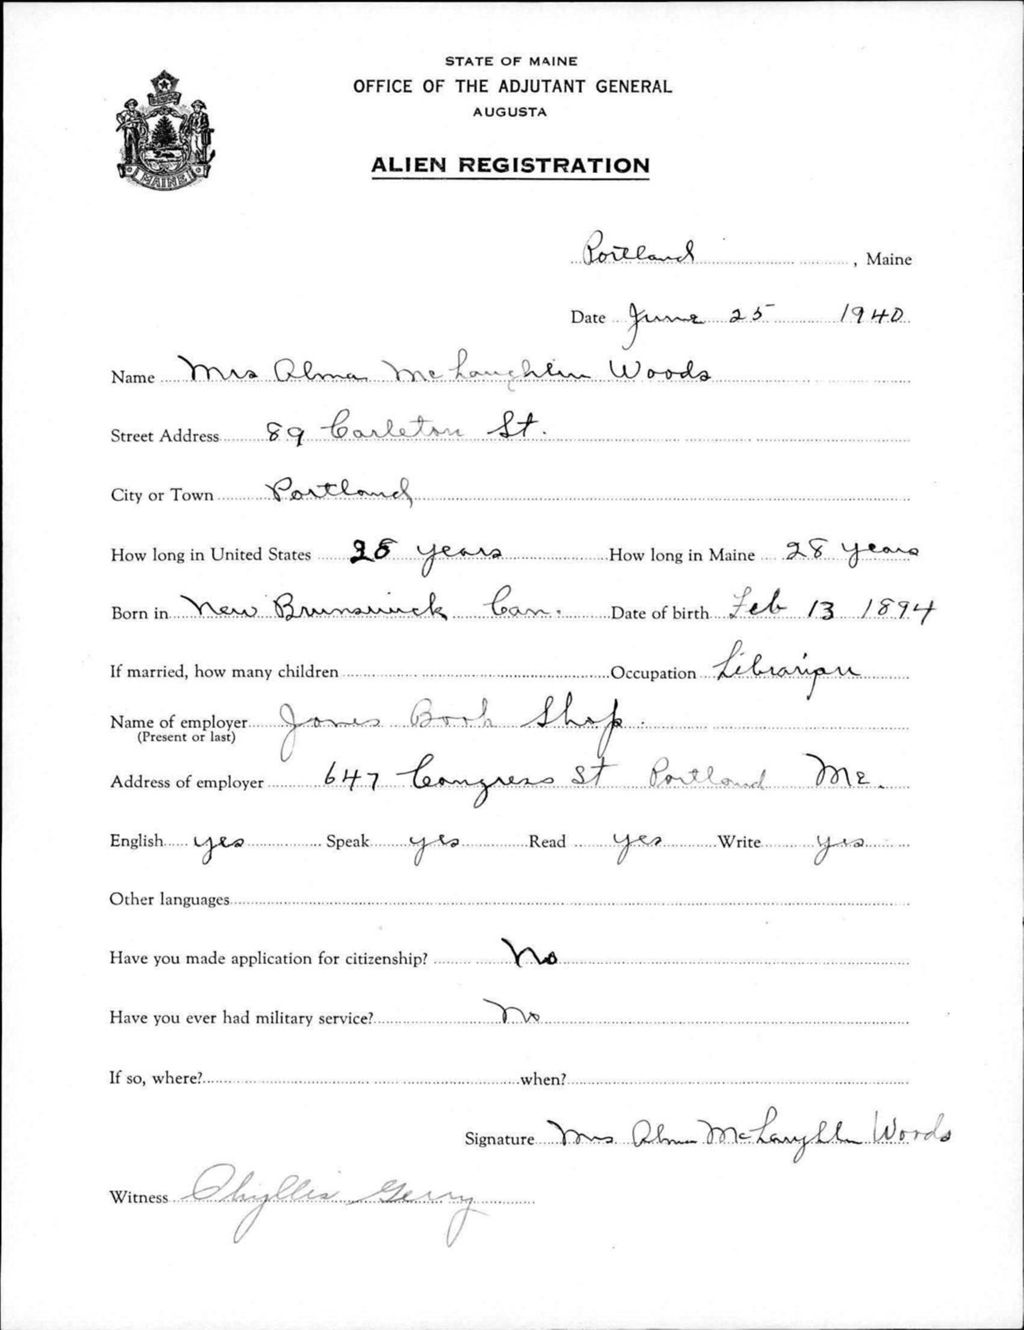 STATE OF MAINE
OFFICE OF THE ADJUTANT GENERAL
AUGUSTA
ALIEN REGISTRATION
MAINE
Portland, Maine
Date June 25 1940
Name Mrs Alma McLaughlin Woods
Street Address 89 Carleton St.
City or Town Portland
How long in United States 28 years How long in Maine 28 years
Born in New Brunswick Can. Date of birth Feb 13 1894
If married, how many children Occupation Librarian
Name of employer Jones Book Shop.
(Present or last)
Address of employer 647 Congress St Portland Me.
English yes Speak yes Read yes Write yes
Other languages
Have you made application for citizenship? No
Have you ever had military service? No
If so, where? when?
Signature Mrs Alma McLaughlin Woods
Witness Phyllis Gerry